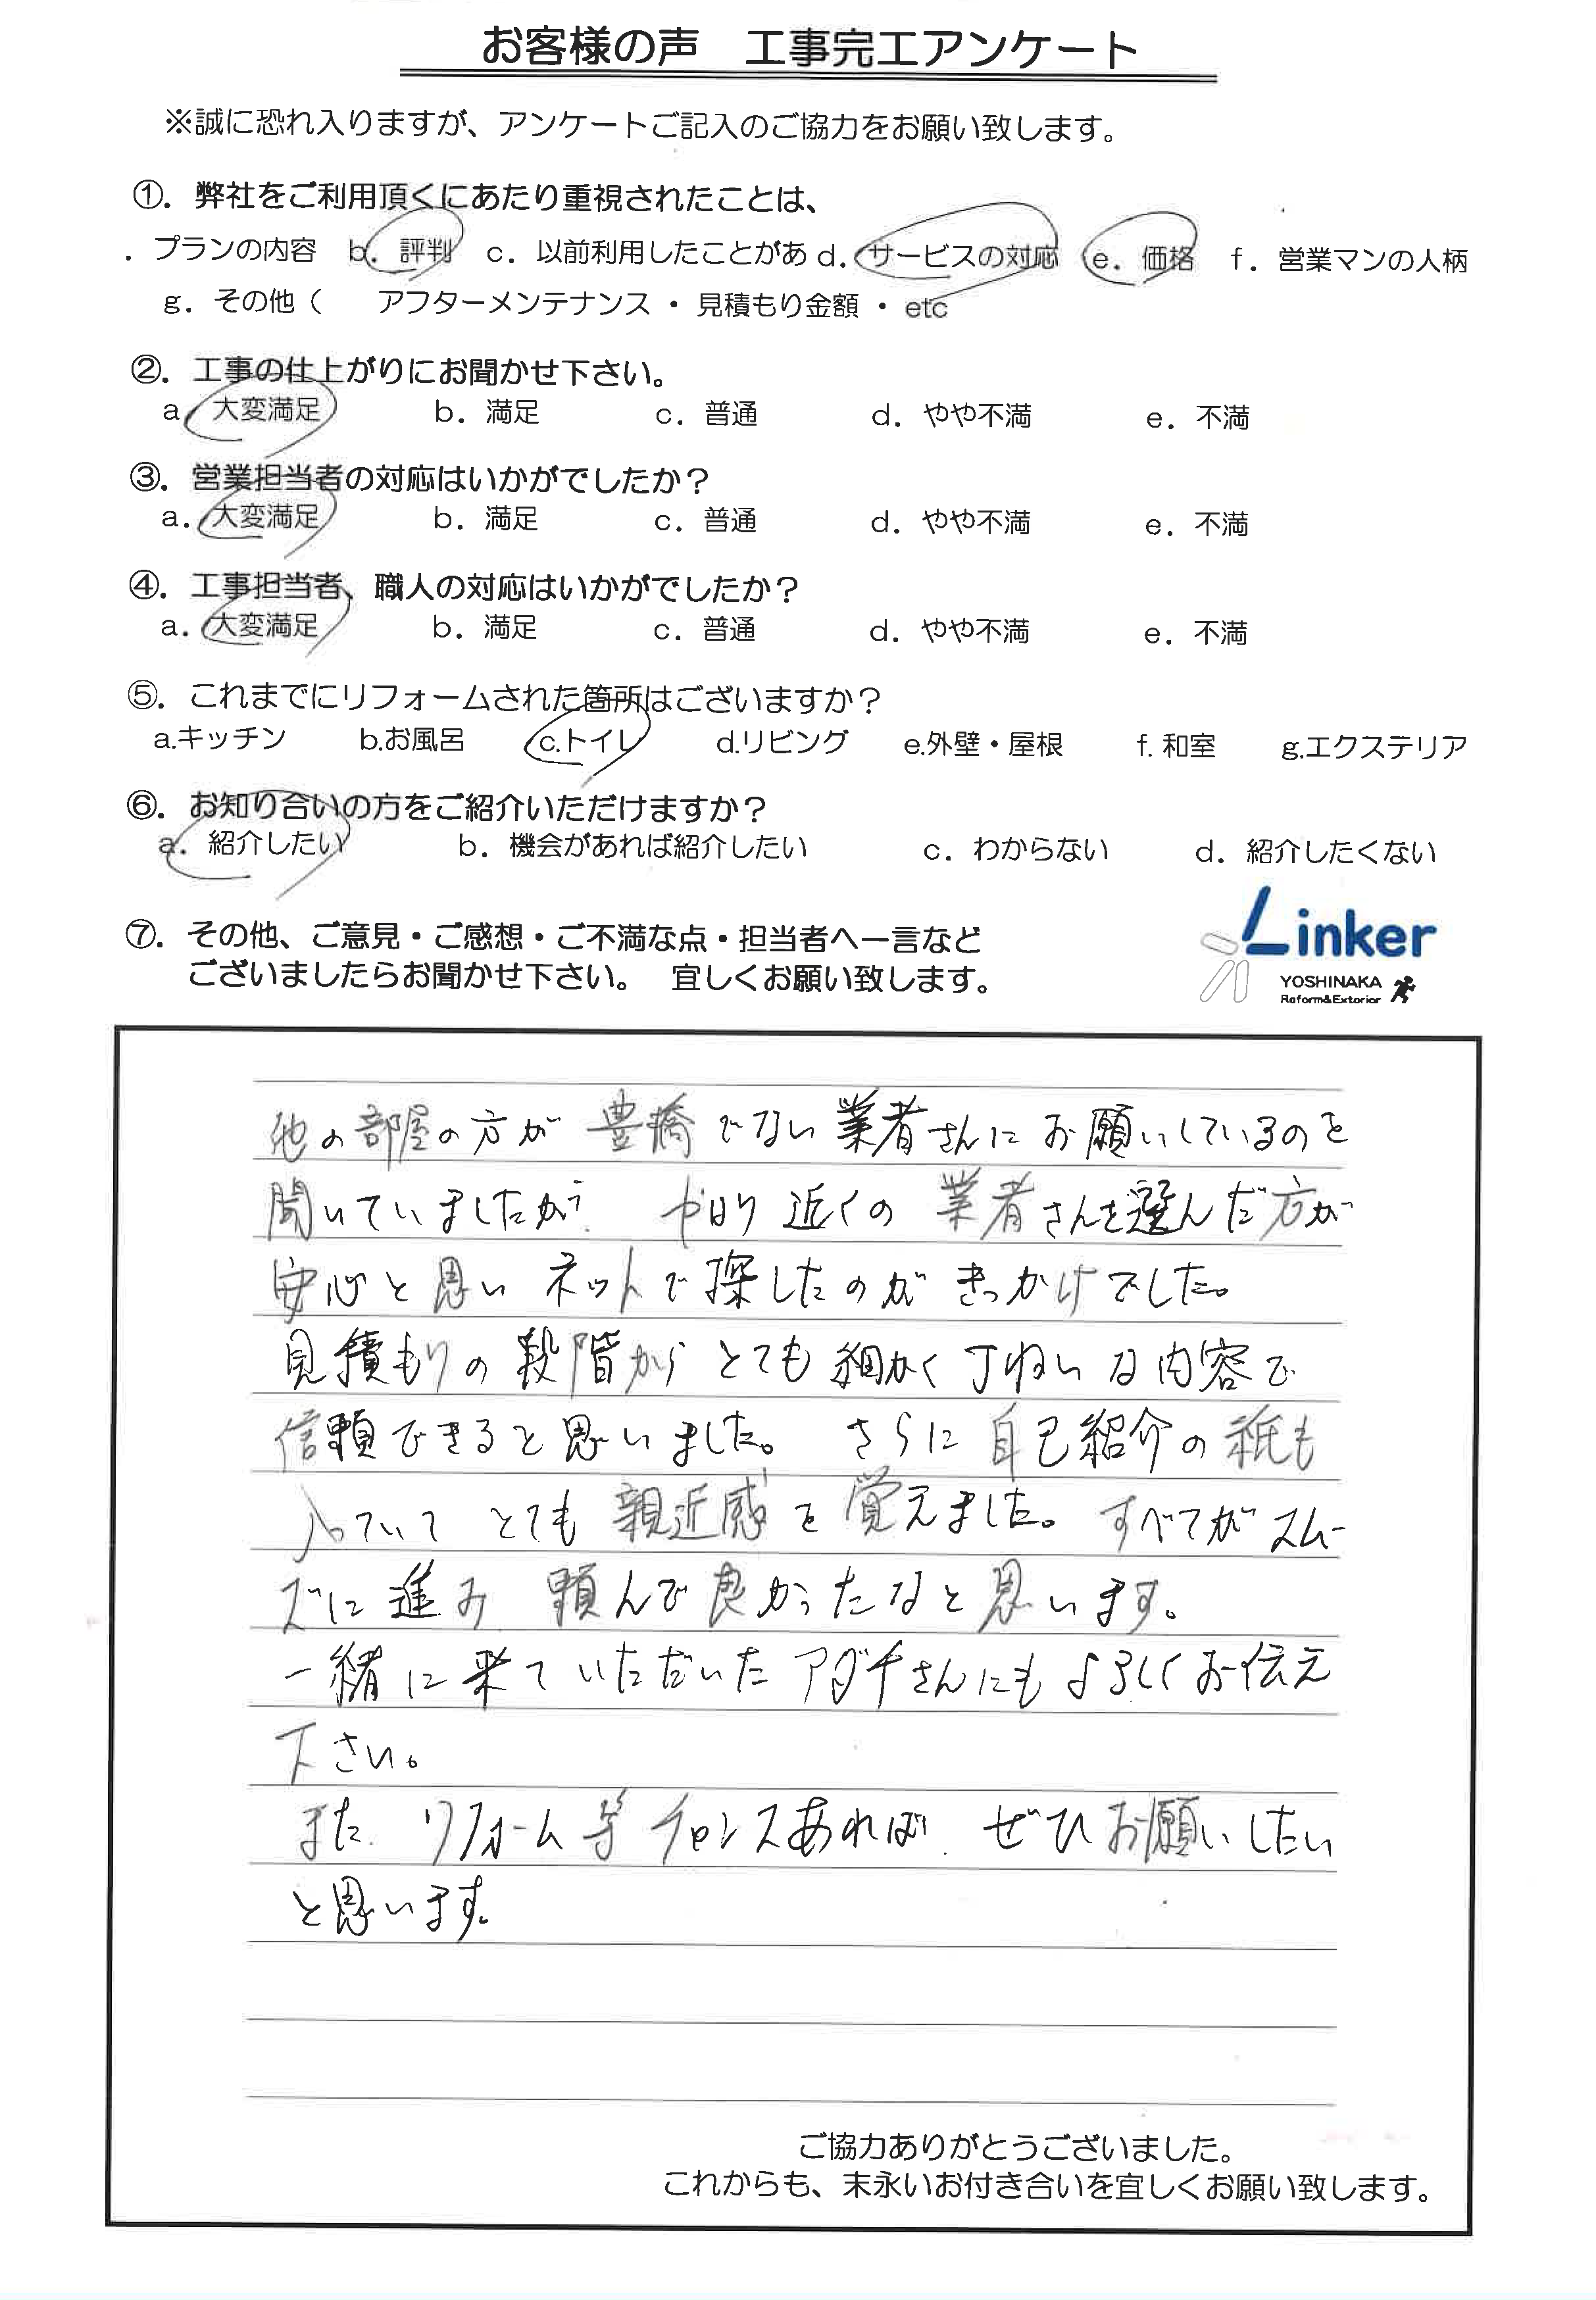 お客様の声　工事完工アンケート
※誠に恐れ入りますが、アンケートご記入のご協力をお願い致します。
①．弊社をご利用頂くにあたり重視されたことは、
．プランの内容　b．評判　c．以前利用したことがあ d．サービスの対応　e．価格　f．営業マンの人柄
g．その他（　アフターメンテナンス・見積もり金額・etc
②．工事の仕上がりにお聞かせ下さい。
a　大変満足　b．満足　c．普通　d．やや不満　e．不満
③．営業担当者の対応はいかがでしたか？
a．大変満足　b．満足　c．普通　d．やや不満　e．不満
④．工事担当者、職人の対応はいかがでしたか？
a．大変満足　b．満足　c．普通　d．やや不満　e．不満
⑤．これまでにリフォームされた箇所はございますか？
a.キッチン　b.お風呂　c.トイレ　d.リビング　e.外壁・屋根　f. 和室　g.エクステリア
⑥．お知り合いの方をご紹介いただけますか？
a．紹介したい　b．機会があれば紹介したい　c．わからない　d．紹介したくない
⑦．その他、ご意見・ご感想・ご不満な点・担当者へ一言など
ございましたらお聞かせ下さい。　宜しくお願い致します。
Linker
YOSHINAKA
Reform&Exterior
他の部屋の方が 豊橋でない業者さんにお願いしているのを
聞いていましたが、やはり近くの業者さんを選んだ方が
安心と思い ネットで探したのがきっかけでした。
見積もりの段階から とても細かく丁ねいな内容で
信頼できると思いました。 さらに自己紹介の紙も
入っていて とても親近感を覚えました。すべてがスムー
ズに進み 頼んで良かったなと思います。
一緒に来ていただいたアダチさんにもよろしくお伝え
下さい。
また、リフォーム等チャンスあれば、ぜひお願いしたい
と思います。
ご協力ありがとうございました。
これからも、末永いお付き合いを宜しくお願い致します。